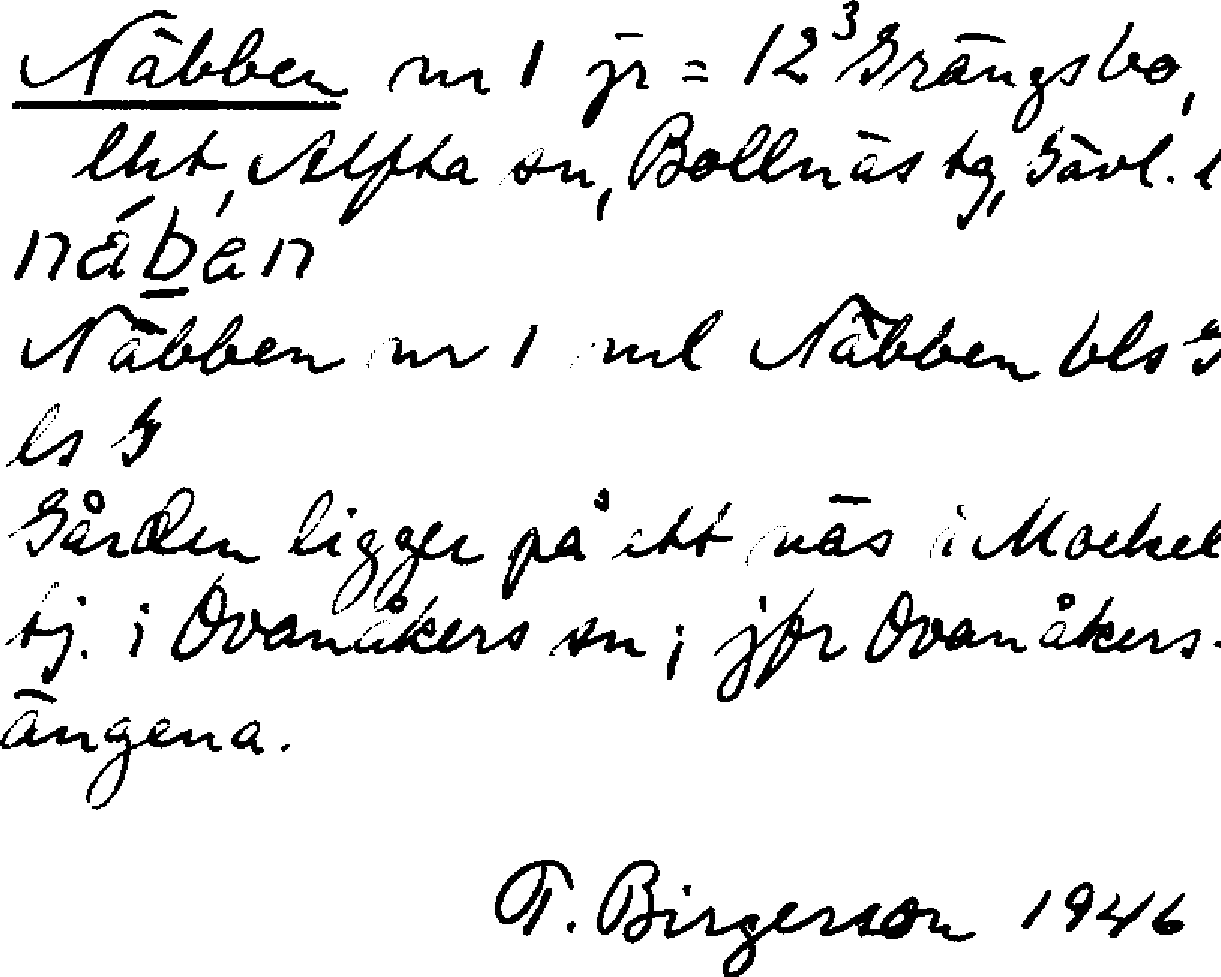 Näbben nr 1 jr = 12³ Grängsbo,
lht, Alfta sn, Bollnäs tg, Gävl. l
Näbben nr 1 ml Näbben bls G
ls G
Gården ligger på ett näs i Mockel
tj. i Ovanåkers sn; jfr Ovanåkers-
ängena.
T. Birgerson 1946